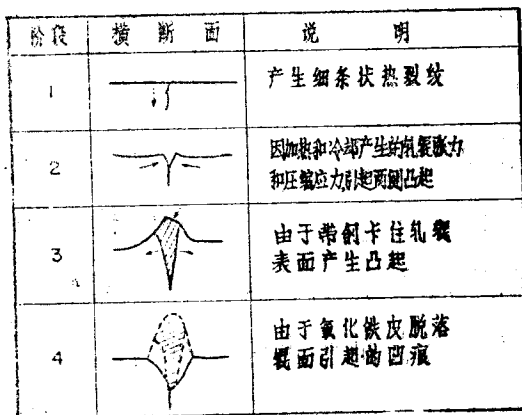 阶段 横断面 说明
1 产生细条状热裂纹
2 因加热和冷却产生的轧辊张力
和压缩应力引起两侧凸起
3 由于带钢卡住轧辊
表面产生凸起
4 由于氧化铁皮脱落
辊面引起的凹痕